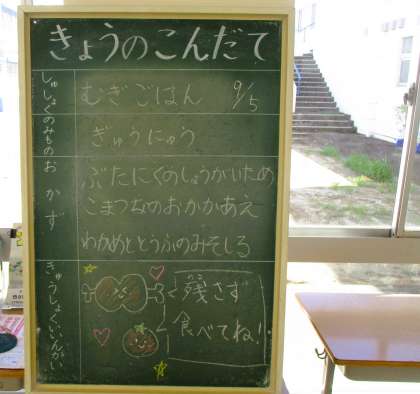 きょうのこんだて
しゅしょく
むぎごはん 9/5
のみもの
ぎゅうにゅう
おかず
ぶたにくのしょうがいため
こまつなのおかかあえ
わかめととうふのみそしる
きゅうしょくいいんかい
残さず
のこ
食べてね!